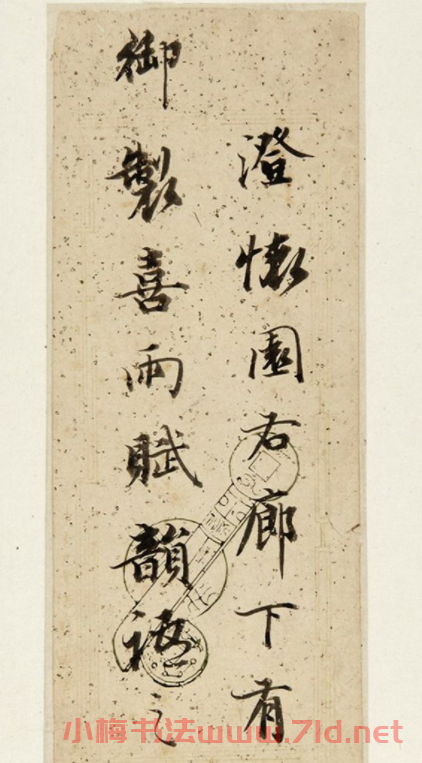 澄懷園右廊下有
御製喜雨賦韻之
小梅书法www.7ld.net